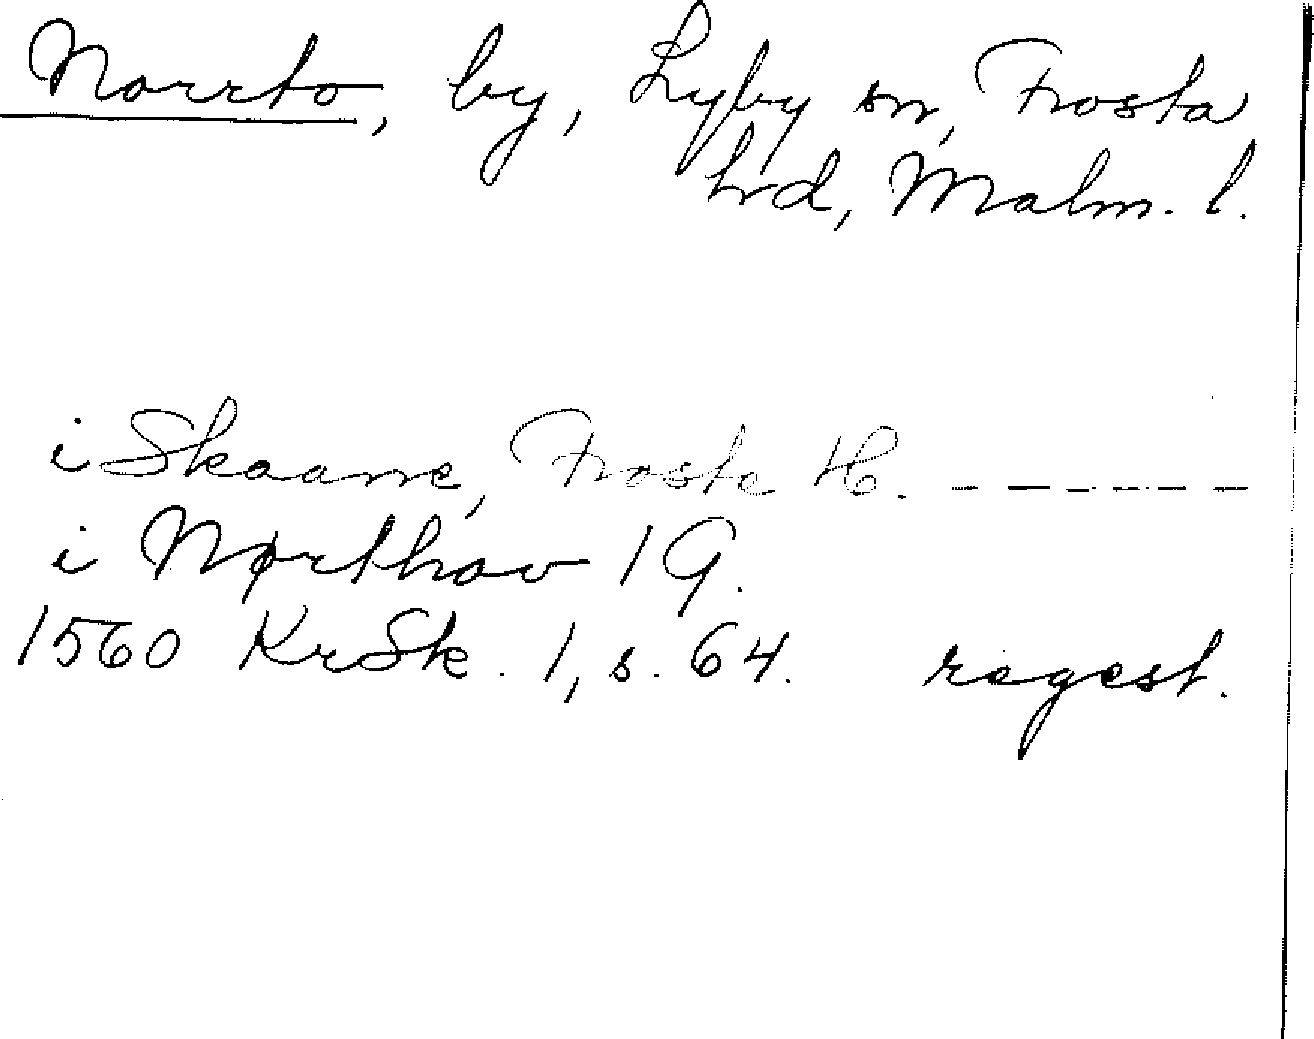 Norrto, by, Lyby sn, Frosta
hrd, Malm. l.
i Skaane, Froste H. - - - - - -
i Nørthov 1 G.
1560 KrSk. 1, s. 64. regest.